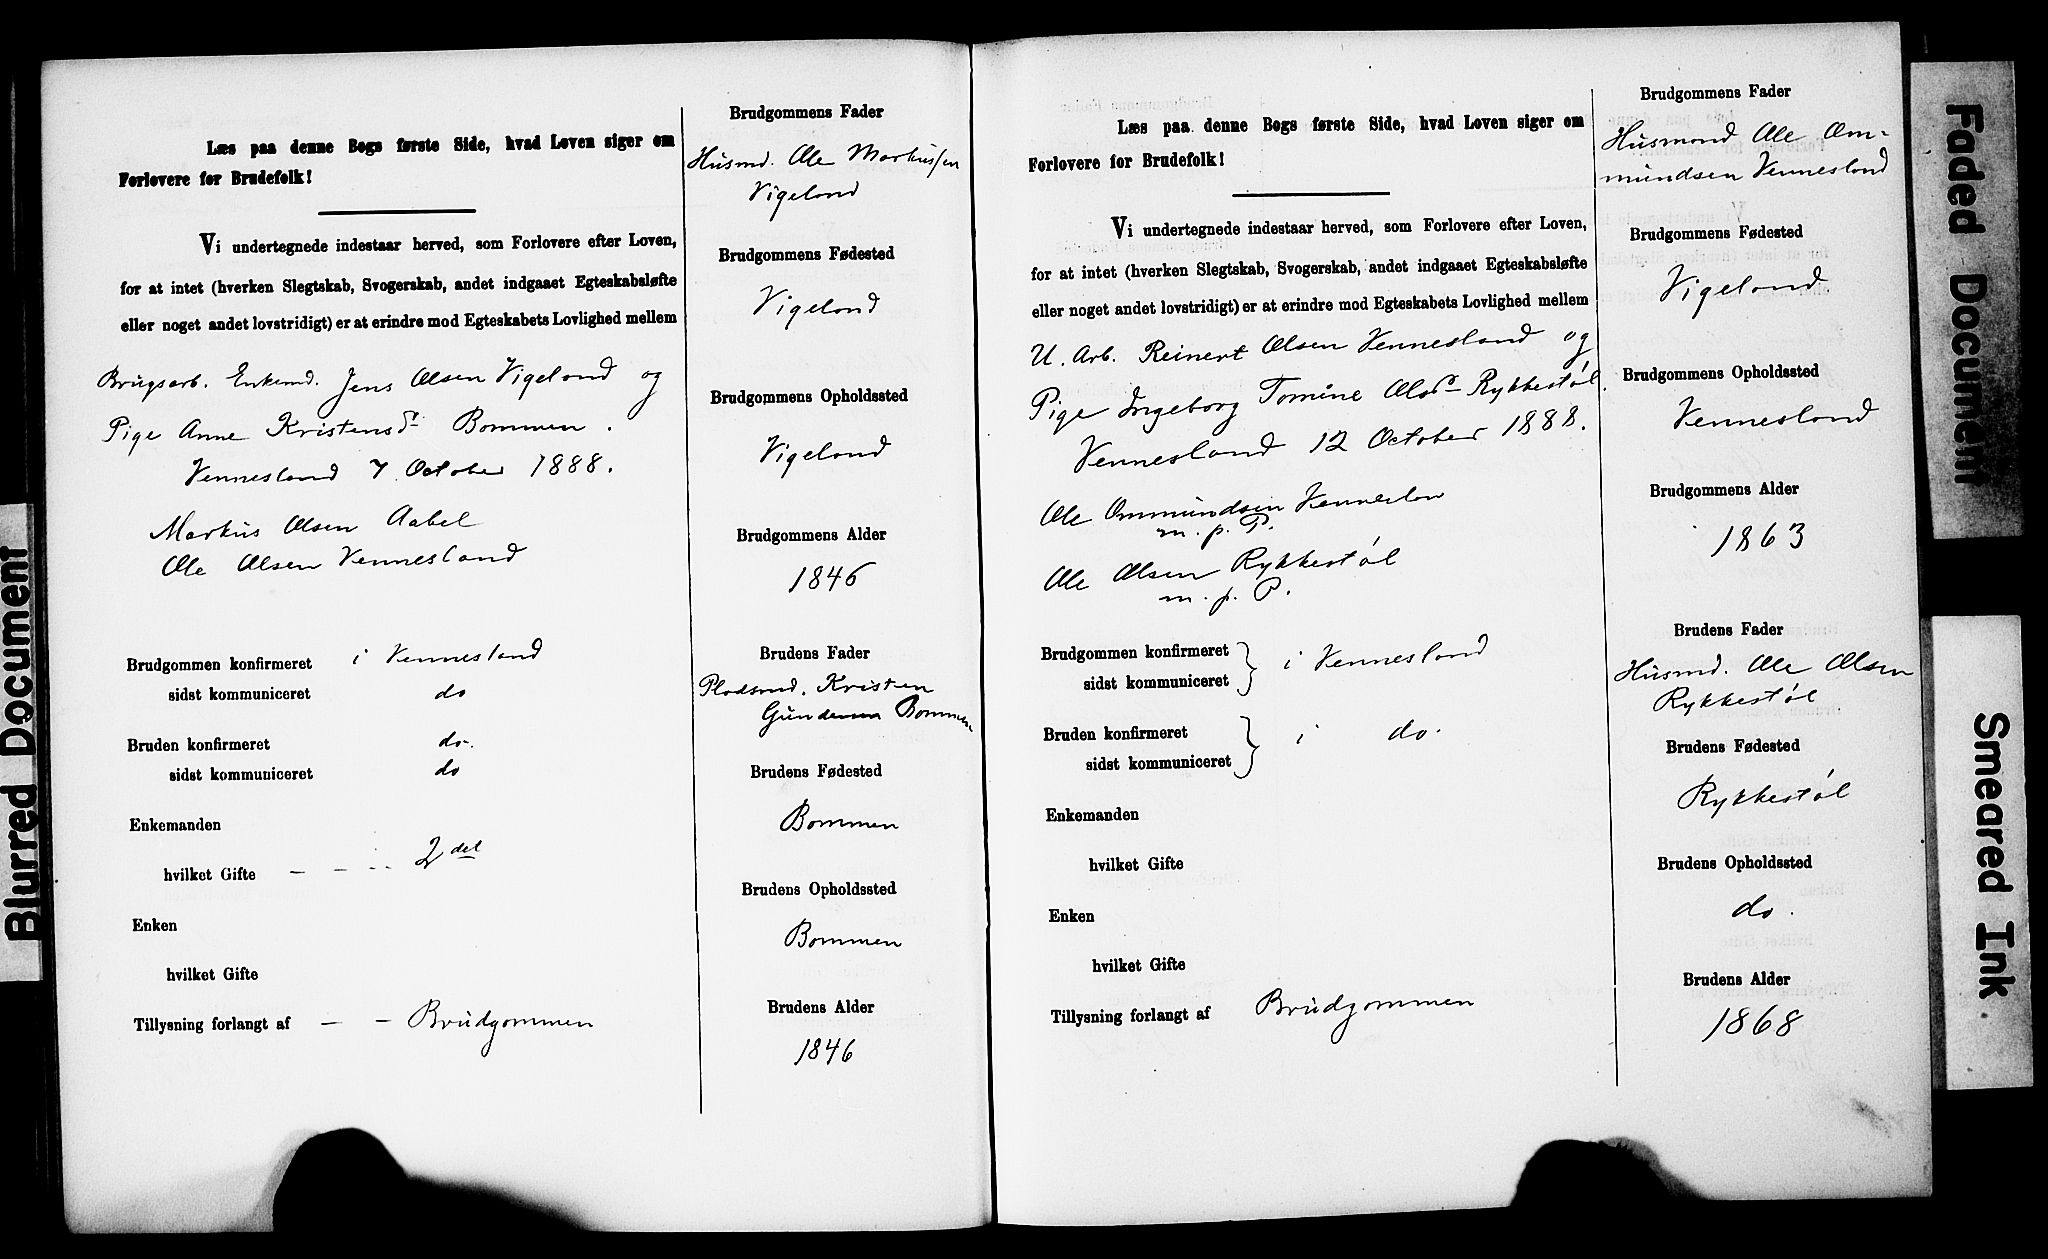 Læs paa denne Bogs første Side, hvad Loven siger om
Forlovere for Brudefolk!
Vi undertegnede indestaar herved, som Forlovere efter Loven,
for at intet (hverken Slegtskab, Svogerskab, andet indgaaet Egteskabsløfte
eller noget andet lovstridigt) er at erindre mod Egteskabets Lovlighed mellem
Brugsarb. Enkemd. Jens Olsen Vigeland og
Pige Anne Kristensd. Bommen.
Vennesland 7. October 1888.
Markus Olsen Aabel
Ole Olsen Vennesland
Brudgommen konfirmeret i Vennesland
sidst kommuniceret do
Bruden konfirmeret do.
sidst kommuniceret do
Enkemanden
hvilket Gifte — — -- 2det
Enken
hvilket Gifte
Tillysning forlangt af — — Brudgommen
Brudgommens Fader
Husmd. Ole Markussen
Vigeland
Brudgommens Fødested
Vigeland
Brudgommens Opholdssted
Vigeland
Brudgommens Alder
1846
Brudens Fader
Pladsmd. Kristen
Gundersen Bommen
Brudens Fødested
Bommen
Brudens Opholdssted
Bommen
Brudens Alder
1846
Læs paa denne Bogs første Side, hvad Loven siger om
Forlovere for Brudefolk!
Vi undertegnede indestaar herved, som Forlovere efter Loven,
for at intet (hverken Slegtskab, Svogerskab, andet indgaaet Egteskabsløfte
eller noget andet lovstridigt) er at erindre mod Egteskabets Lovlighed mellem
U. Arb. Reinert Olsen Vennesland og
Pige Ingeborg Tomine Olsd. Rykkestøl.
Vennesland 12 October 1888.
Ole Ommundsen Venneslan
m. p. P.
Ole Olsen Rykkestøl
m. p. P.
Brudgommen konfirmeret
sidst kommuniceret } i Vennesland
Bruden konfirmeret
sidst kommuniceret } i do.
Enkemanden
hvilket Gifte
Enken
hvilket Gifte
Tillysning forlangt af Brudgommen
Brudgommens Fader
Husmand Ole Om-
mundsen Vennesland
Brudgommens Fødested
Vigeland
Brudgommens Opholdssted
Vennesland
Brudgommens Alder
1863
Brudens Fader
Husmd. Ole Olsen
Rykkestøl
Brudens Fødested
Rykkestøl
Brudens Opholdssted
do.
Brudens Alder
1868
Blurred Document
Faded Document
Smeared Ink